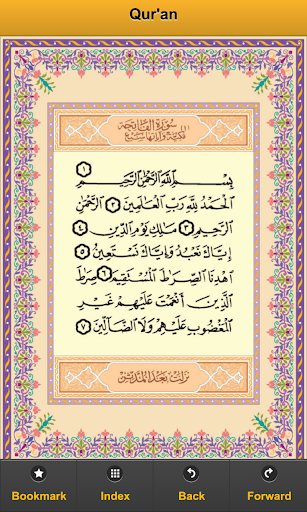 Qur'an
سورة الفاتحة
مكية وآياتها سبع
بِسْمِ ٱللَّهِ ٱلرَّحْمَٰنِ ٱلرَّحِيمِ ١
ٱلْحَمْدُ لِلَّهِ رَبِّ ٱلْعَٰلَمِينَ ٢ ٱلرَّحْمَٰنِ
ٱلرَّحِيمِ ٣ مَٰلِكِ يَوْمِ ٱلدِّينِ ٤
إِيَّاكَ نَعْبُدُ وَإِيَّاكَ نَسْتَعِينُ ٥
ٱهْدِنَا ٱلصِّرَٰطَ ٱلْمُسْتَقِيمَ ٦ صِرَٰطَ
ٱلَّذِينَ أَنْعَمْتَ عَلَيْهِمْ غَيْرِ
ٱلْمَغْضُوبِ عَلَيْهِمْ وَلَا ٱلضَّآلِّينَ ٧
نزلت بعد المدثر
Bookmark Index Back Forward